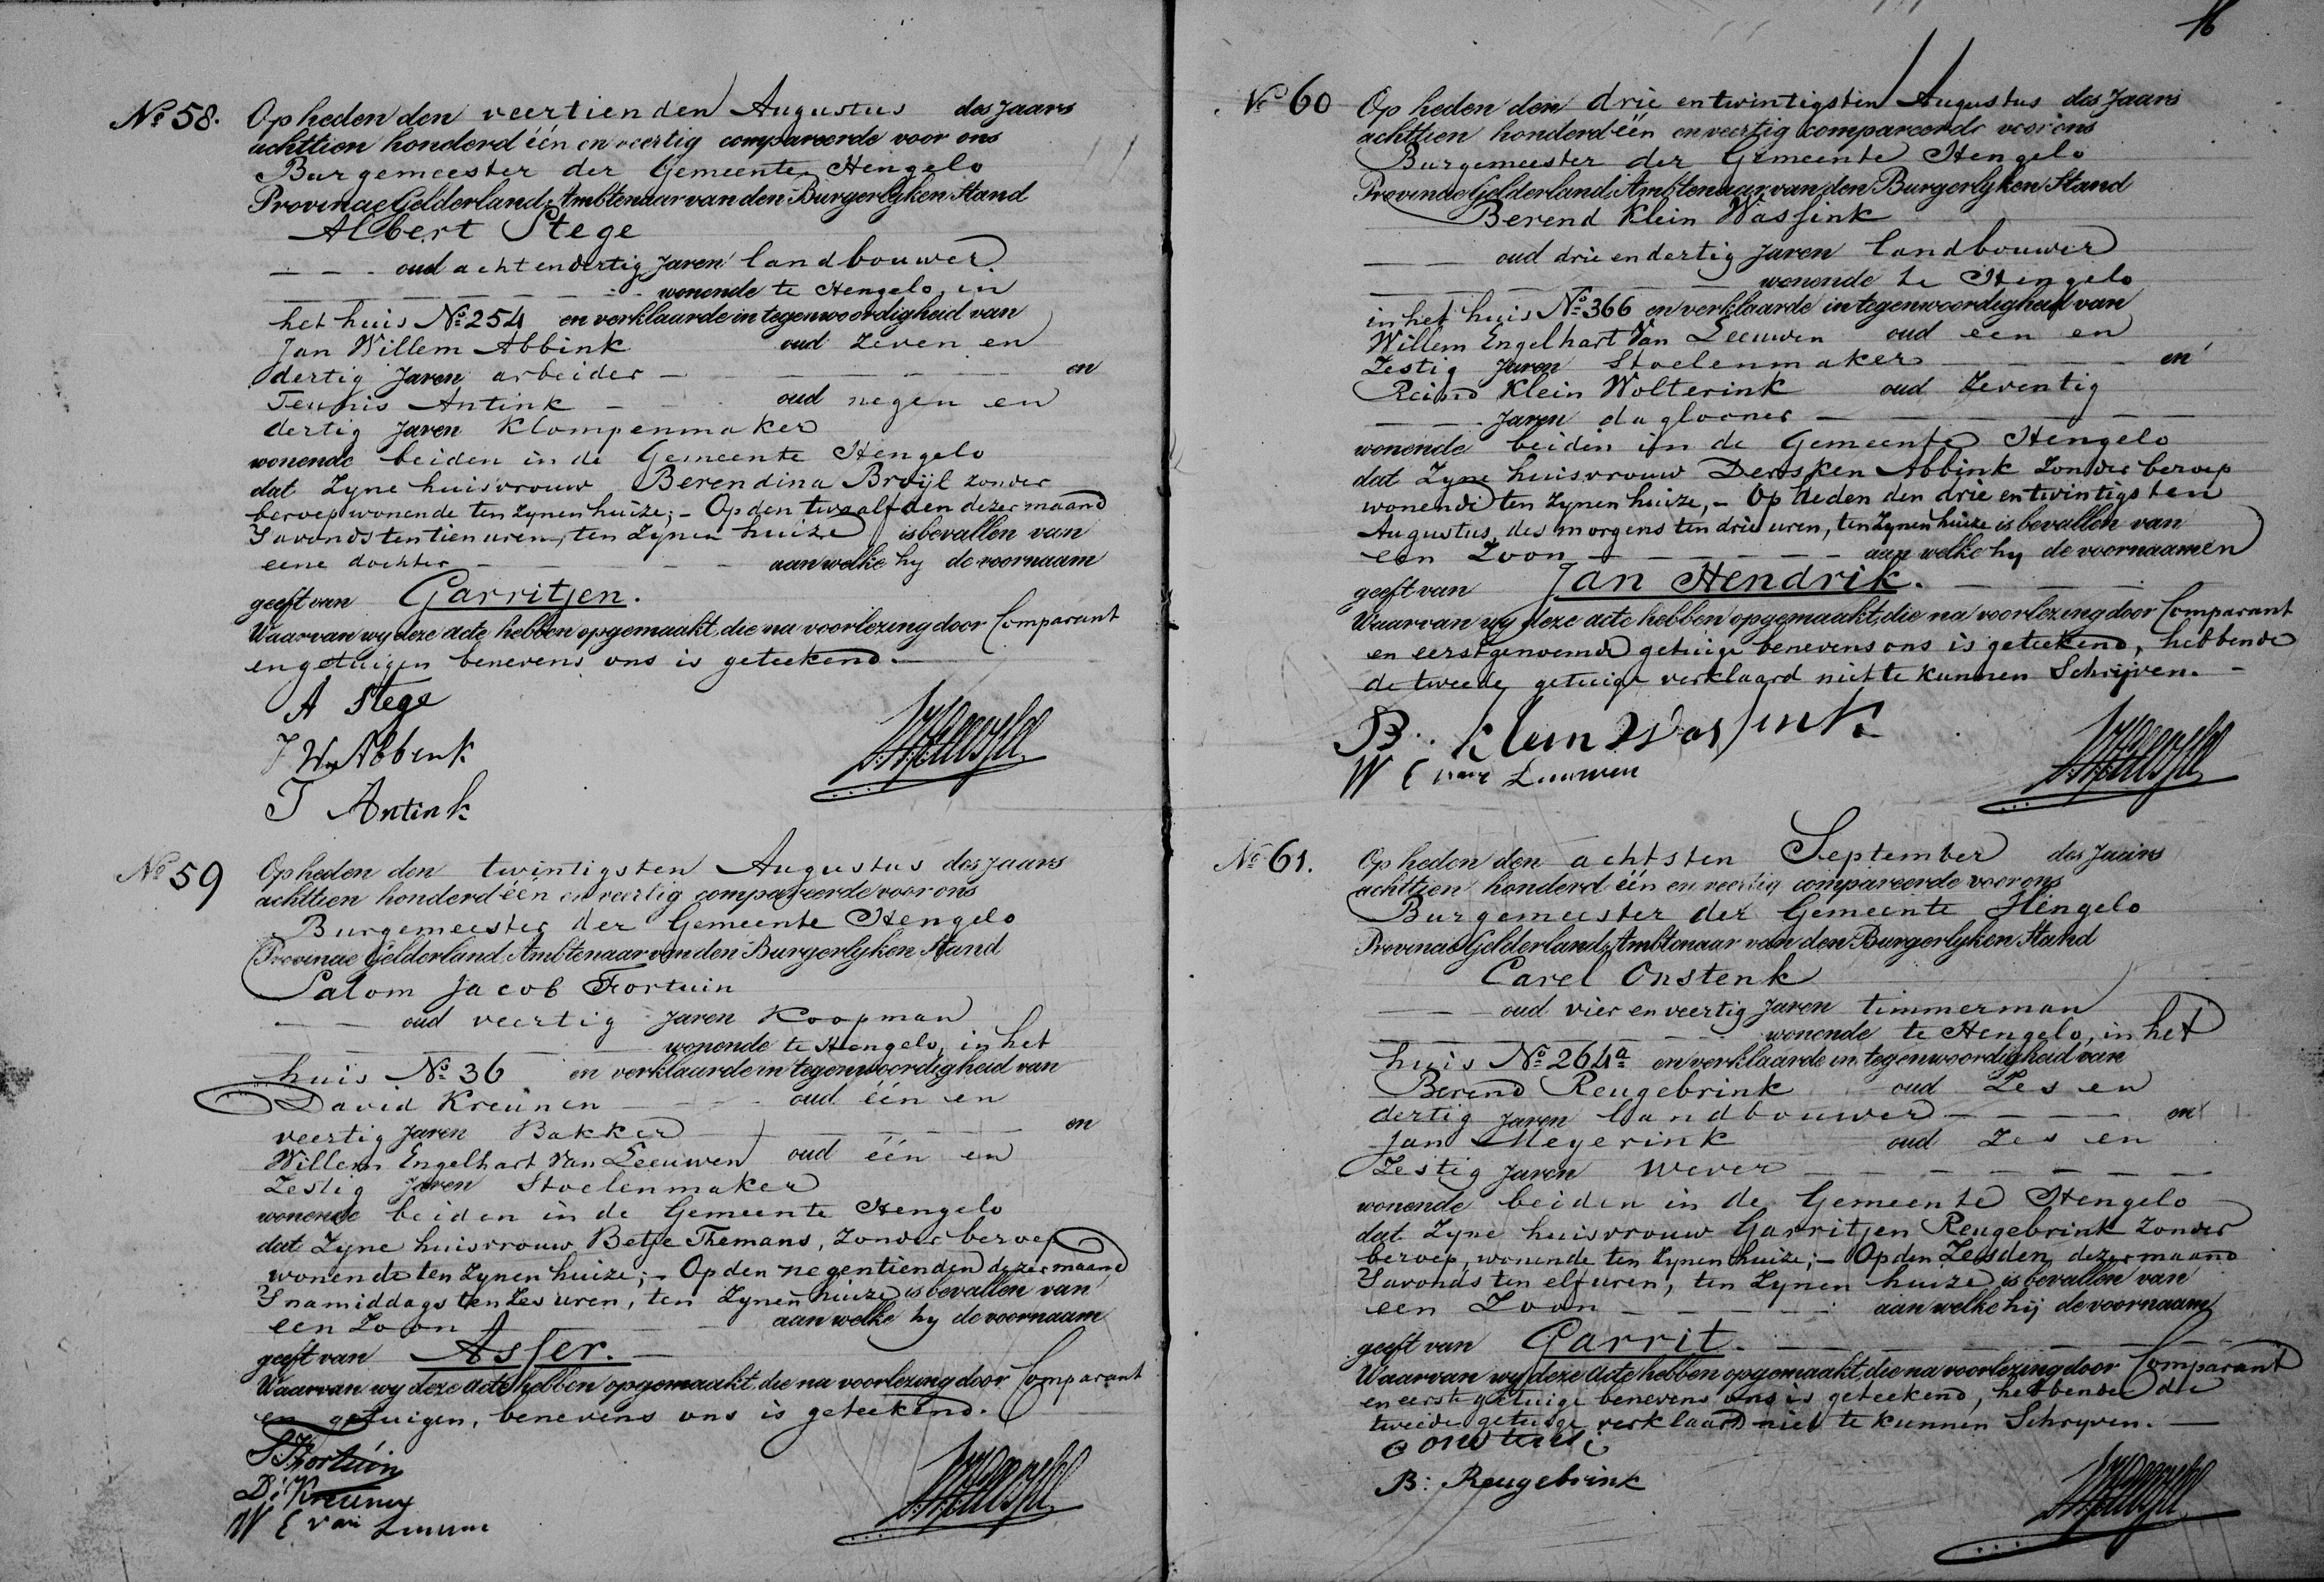 No 58.
Op heden den veertienden Augustus des Jaars
achttien honderd één en veertig compareerde voor ons
Burgemeester der Gemeente Hengelo
Provincie Gelderland, Ambtenaar van den Burgerlyken Stand
Albert Stege
oud acht en dertig Jaren landbouwer
wonende te Hengelo, in
het huis No 254 en verklaarde in tegenwoordigheid van
Jan Willem Abbink oud Zeven en
dertig Jaren arbeider en
Teunis Antink oud negen en
dertig Jaren Klompenmaker
wonende beiden in de Gemeente Hengelo
dat Zyne huisvrouw Berendina Bruijl zonder
beroep wonende ten Zynen huize; - Op den twaalfden dezer maand
S'avonds ten tien uren, ten Zynen huize is bevallen van
eene dochter aan welke hy de voornaam
geeft van Garritjen.
Waarvan wy deze acte hebben opgemaakt, die na voorlezing door Comparant
en getuigen benevens ons is geteekend.
A Stege
J W Abbenk
T Antink
No 59
Op heden den twintigsten Augustus des Jaars
achttien honderd één en veertig compareerde voor ons
Burgemeester der Gemeente Hengelo
Provincie Gelderland, Ambtenaar van den Burgerlyken Stand
Salom Jacob Fortuin
oud veertig Jaren Koopman
wonende te Hengelo, in het
huis No 36 en verklaarde in tegenwoordigheid van
David Kreunen oud één en
veertig Jaren Bakker en
Willem Engelhart Van Leeuwen oud één en
Zestig Jaren Stoelenmaker
wonende beiden in de Gemeente Hengelo
dat Zyne huisvrouw Betje Themans, Zonder beroep
wonende ten Zynen huize; - Op den negentienden dezer maand
S'namiddags ten Zes uren, ten Zynen huize is bevallen van
een Zoon aan welke hy de voornaam
geeft van Asser.
Waarvan wy deze acte hebben opgemaakt, die na voorlezing door Comparant
en getuigen, benevens ons is geteekend.
S J Fortuin
D: Kreunen
W E van Leeuwen
16
No 60
Op heden den drie en twintigsten Augustus des Jaars
achttien honderd één en veertig compareerde voor ons
Burgemeester der Gemeente Hengelo
Provincie Gelderland, Ambtenaar van den Burgerlyken Stand
Berend Klein Wassink
oud drie en dertig Jaren landbouwer
wonende te Hengelo
in het huis No 366 en verklaarde in tegenwoordigheid van
Willem Engelhart Van Leeuwen oud een en
Zestig Jaren Stoelenmaker en
Reind Klein Wolterink oud Zeventig
Jaren daglooner
wonende beiden in de Gemeente Hengelo
dat Zyne huisvrouw Dersken Abbink Zonder beroep
wonende ten Zynen huize, - Op heden den drie en twintigsten
Augustus, des morgens ten drie uren, ten Zynen huize is bevallen van
een Zoon aan welke hy de voornaamen
geeft van Jan Hendrik.
Waarvan wy deze acte hebben opgemaakt, die na voorlezing door Comparant
en eerstgenoemde getuige benevens ons is geteekend, hebbende
de tweede getuige verklaard niet te kunnen Schrijven.
B. Klein Wassink
W E van Leeuwen
No 61.
Op heden den achtsten September des Jaars
achttien honderd één en veertig compareerde voor ons
Burgemeester der Gemeente Hengelo
Provincie Gelderland, Ambtenaar van den Burgerlyken Stand
Carel Onstenk
oud vier en veertig Jaren timmerman
wonende te Hengelo, in het
huis No 264a en verklaarde in tegenwoordigheid van
Berend Reugebrink oud Zes en
dertig Jaren landbouwer en
Jan Meyerink oud Zes en
Zestig Jaren wever
wonende beiden in de Gemeente Hengelo
dat Zyne huisvrouw Garritjen Reugebrink Zonder
beroep, wonende ten Zynen huize; - Op den Zesden dezer maand
S'avonds ten elf uren, ten Zynen huize is bevallen van
een Zoon aan welke hij de voornaam
geeft van Garrit.
Waarvan wy deze acte hebben opgemaakt, die na voorlezing door Comparant
en eerste getuige benevens ons is geteekend, hebbende de
tweede getuige verklaard niet te kunnen Schryven.
B: Reugebrink